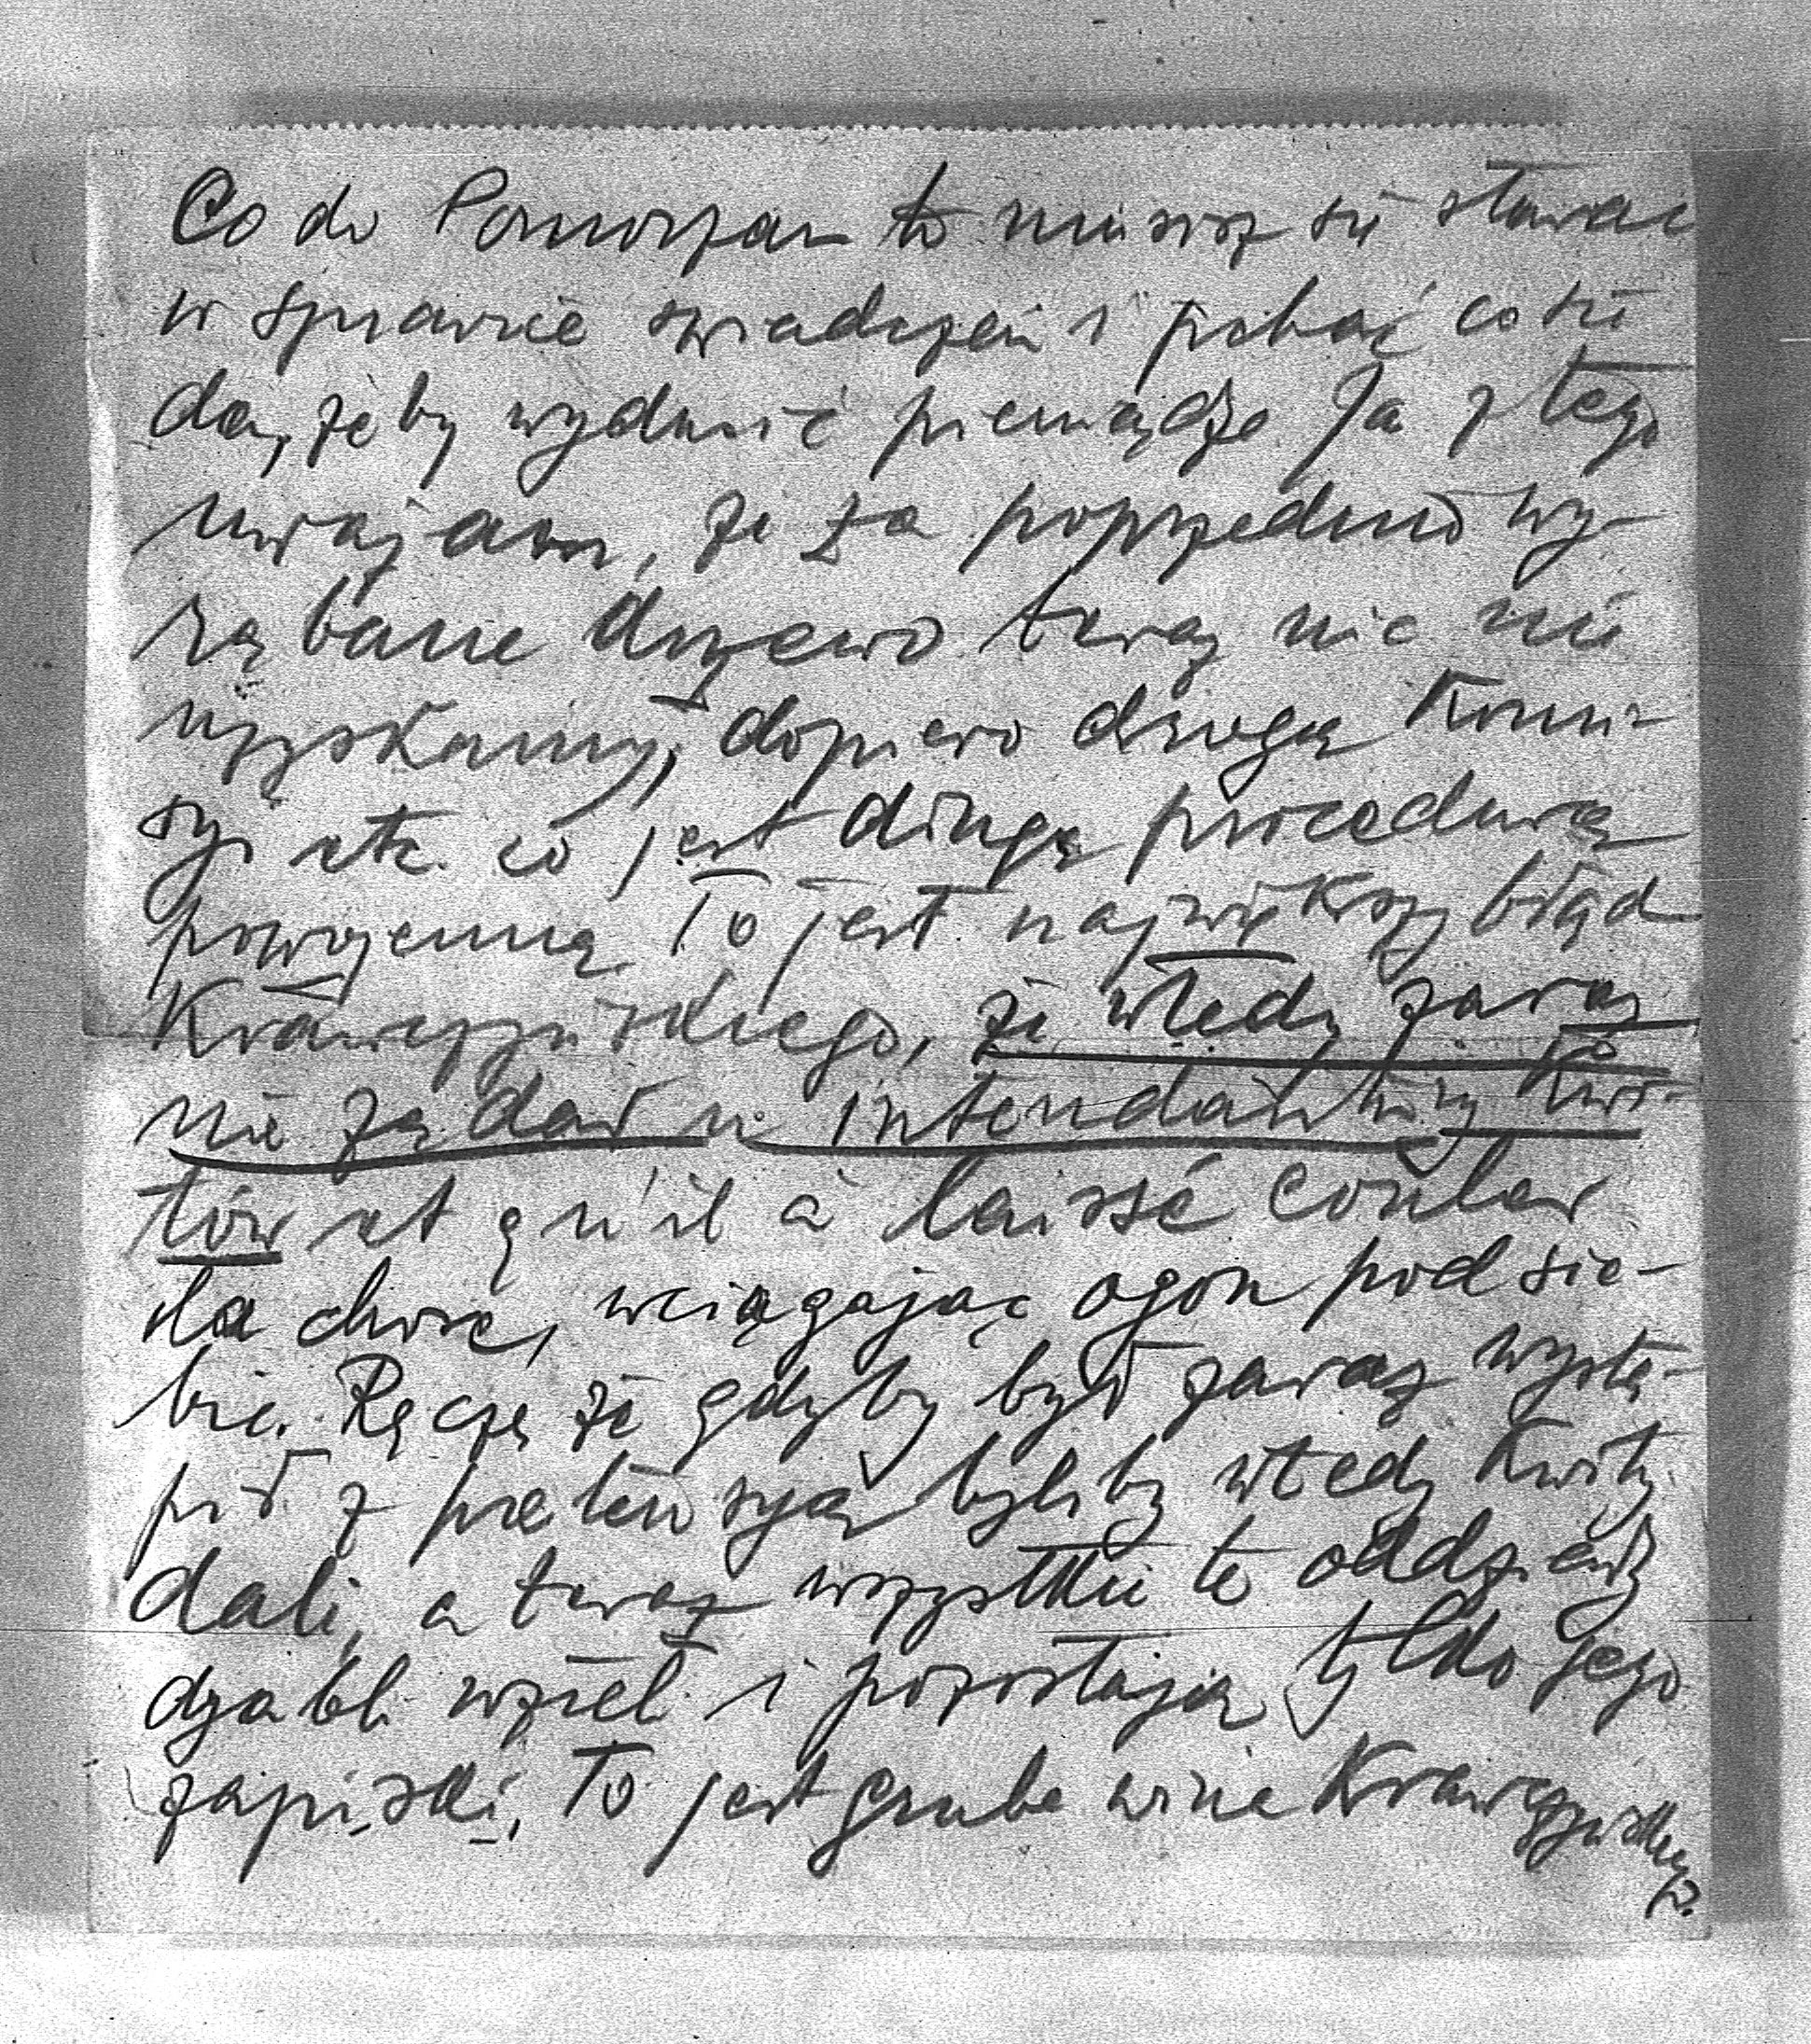 Co do Pomorzan to musisz się starać
w sprawie świadczeń i robić co się
da, żeby wydusić pieniądze. Ja z tego
uważam, że za poprzednio wy-
rąbane drzewo teraz nic nie
uzyskamy, dopiero drogą komi-
syi etc. co jest długą procedurą
powojenną. To jest największy błąd
Krawczyńskiego, że wtedy zaraz
nie żądał u intendantury kwi-
tów et qu'il a laissé couler
la chose, wciągając ogon pod sie-
bie. Ręczę że gdyby był zaraz wystą-
pił z pretensyą byliby wtedy kwity
dali, a teraz wszystkie te oddziały
djabli wzięli i pozostają tylko jego
zapiski. To jest gruba wina Krawczyńskiego.